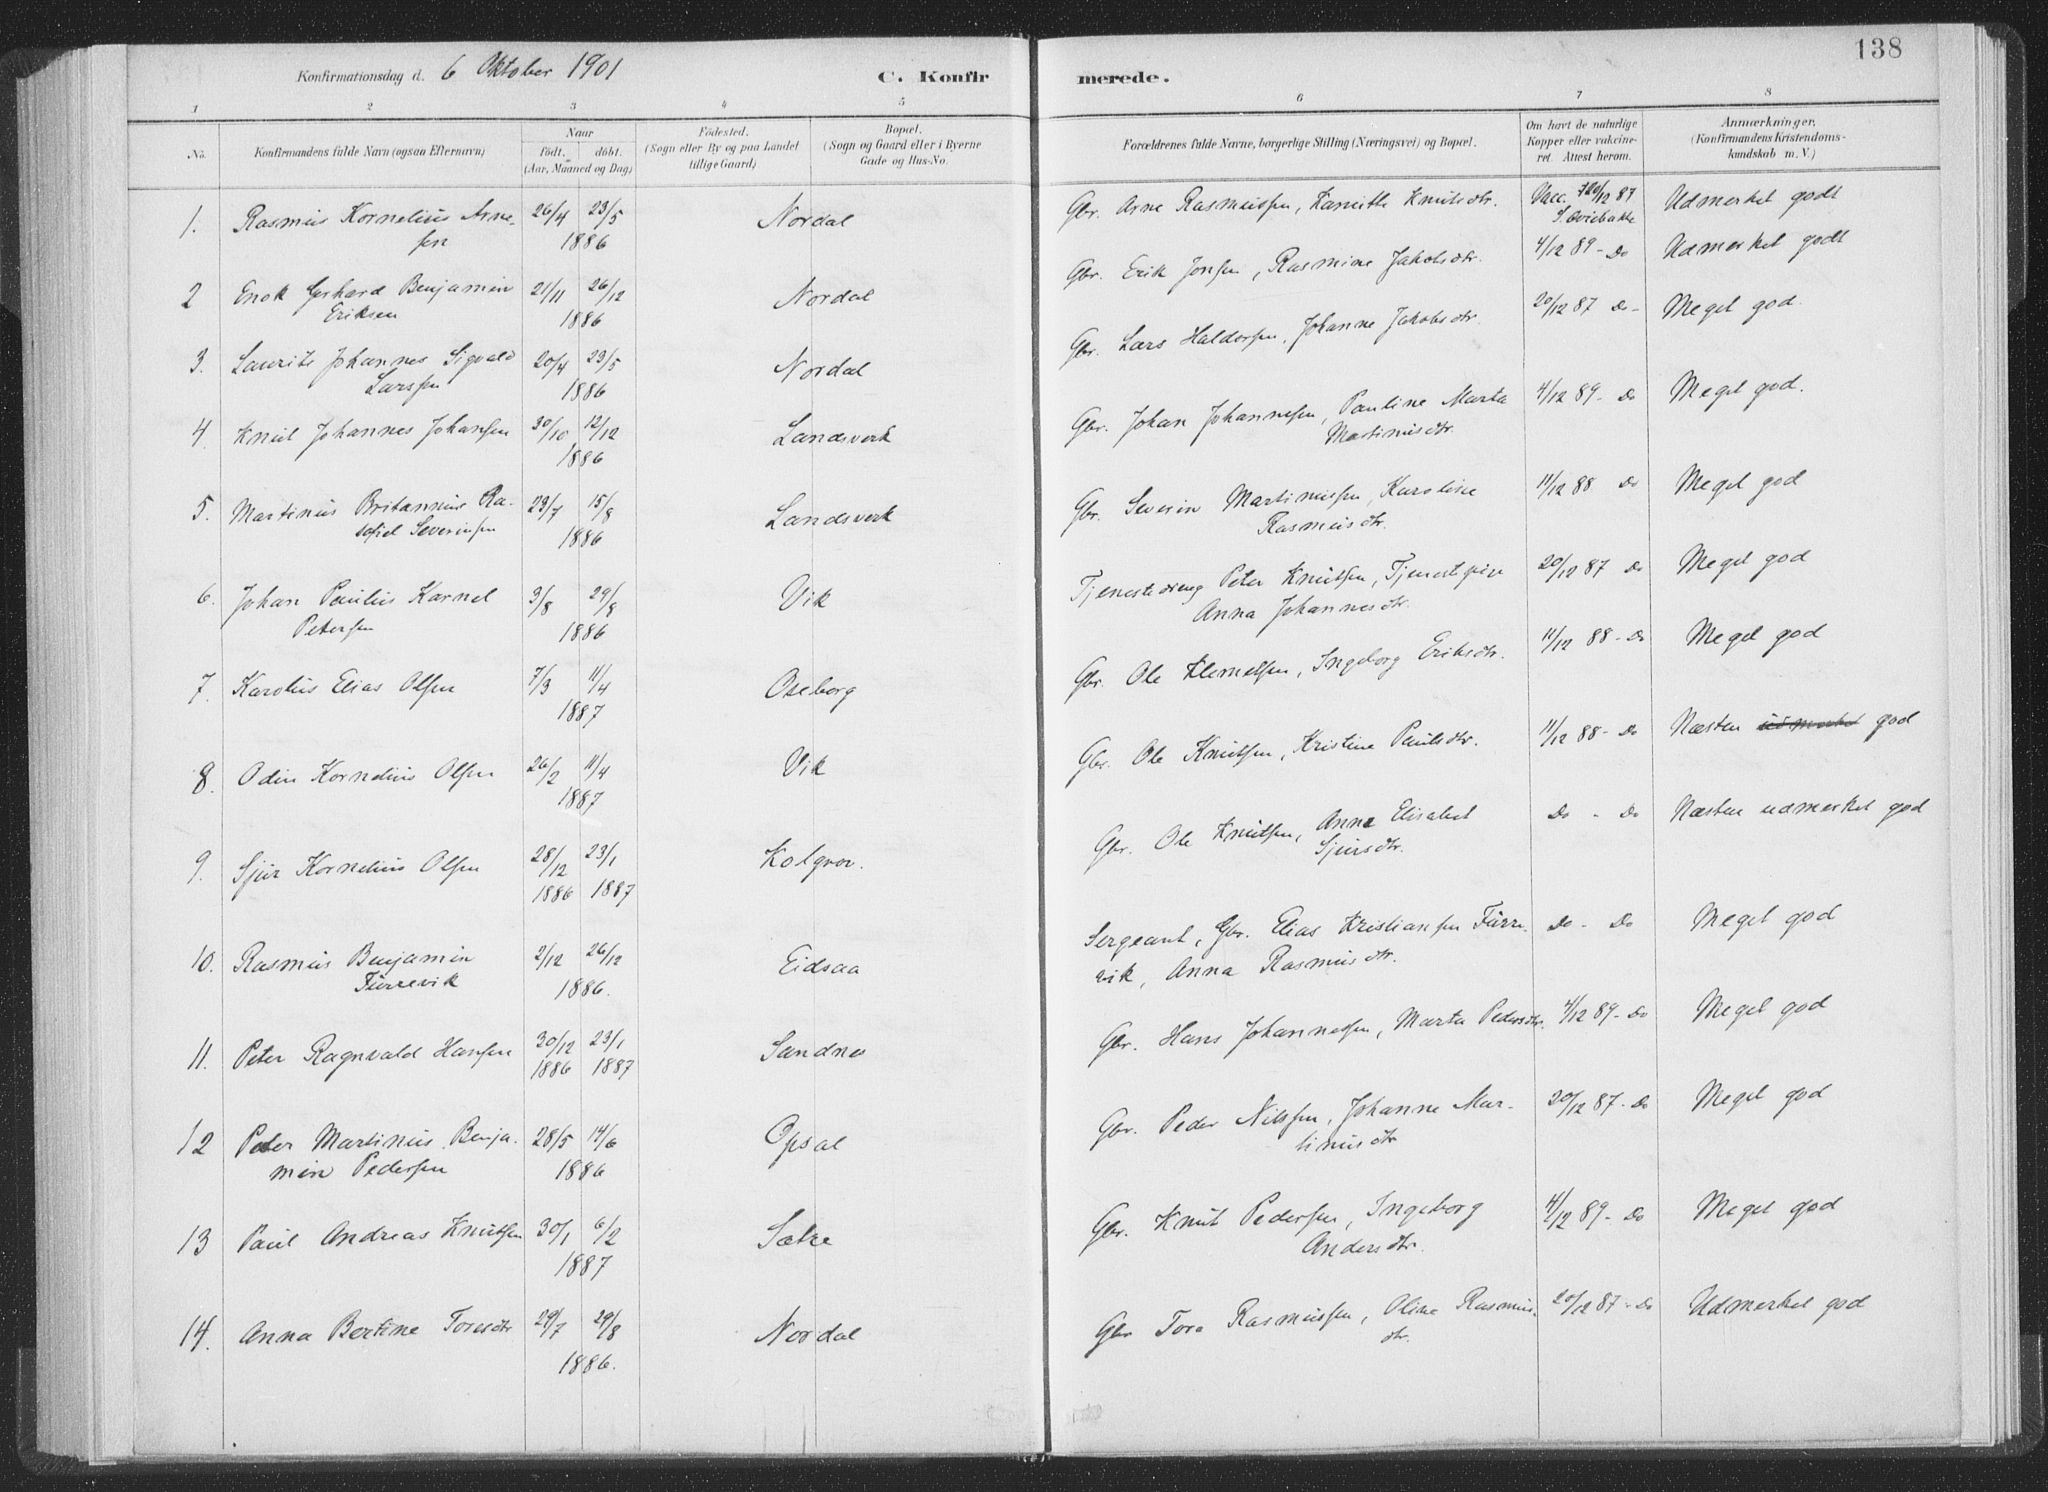 138
Konfirmationsdag d. 6 Oktober 1901 C. Konfirmerede.
1 2 3 4 5 6 7 8
No. Konfirmandens fulde Navn (ogsaa Efternavn) Naar født. døbt. (Aar, Maaned og Dag) Fødested. (Sogn eller By og paa Landet tillige Gaard) Bopæl. (Sogn og Gaard eller i Byerne Gade og Hus-No. Forældrenes fulde Navne, borgerlige Stilling (Næringsvei) og Bopæl. Om havt de naturlige Kopper eller vakcineret. Attest herom. Anmærkninger. (Konfirmandens Kristendomskundskab m. V.)
1. Rasmus Kornelius Arne- 26/4 23/5 Nordal Gbr. Arne Rasmussen, Knutsdtr. Vacc. 20/12 87 Udmerket godt
sen 1886
2 Enok Gerhard Benjamin 21/11 26/12 Nordal Gbr. Erik Jonsen, Rasmine Jakobsdtr. 4/12 89 - Do Udmerket godt
Eriksen 1886
3. Laurits Johannes Sigvald 20/4 23/5 Nordal Gbr. Lars Haldorsen, Johanne Jakobsdtr. 20/12 87 Do - Meget god.
Larssen 1886
4. Knut Johannes Johansen 30/10 12/12 Landsverk Gbr. Johan Johannesen, Pauline Marta 4/12 89 - Do Meget god.
1886 Martinusdtr.
5. Martinus Britannus Ra- 23/7 15/8 Landsverk Gbr. Severin Martinussen, Karoline 11/12 88 Do Meget god
Severinsen 1886 Rasmusdtr.
6. Johan Paulus Karnel 3/8 29/8 Vik Tjenestedreng Peter Knutsen, Tjenestepige 20/12 87 Do Meget god
Petersen 1886 Anna Johannesdtr.
7. Karolus Elias Olsen 7/3 11/4 Oseborg Gbr. Ole Klemetsen, Ingeborg Eriksdtr. 11/12 88 - Do Meget god
1887
8. Odin Kornelius Olsen 26/2 11/4 Vik Gbr. Ole Knutsen, Kristine Paulsdtr. 11/12 88 - Do Næsten udmerket god
1887
9. Sjur Kornelius Olsen 28/12 23/1 Kolgrov. Gbr. Ole Knutsen, Anna Elisabet Do - Do Næsten udmerket god
1886 1887 Sjursdtr.
10. Rasmus Benjamin 2/12 26/12 Eidsaa Sergeant, Gbr. Elias Kristiansen Furre- Do - Do Meget god
Furrevik 1886. vik, Anna Rasmusdtr.
11. Peter Ragnvald Hansen 30/12 23/1 Sandnes Gbr. Hans Johannessen, Marta Pedersdtr. 4/12 89 - Do Meget god
1886 1887
12 Peter Martinus Benja- 28/5 14/6 Opsal Gbr. Peder Nilssen, Johanne Mar- 20/12 87 - Do Meget god
min Pedersen 1886 tinusdtr
13 Paul Andreas Knutsen 30/1 6/2 Sætre Gbr. Knut Pedersen, Ingeborg 4/12 89 - Do Meget god
1887 Andersdtr.
14. Anna Bertine Toresdtr 29/7 29/8 Nordal Gbr Tore Rasmussen, Oline Rasmus- 20/12 87 - Do Udmerket god
1886. dtr.